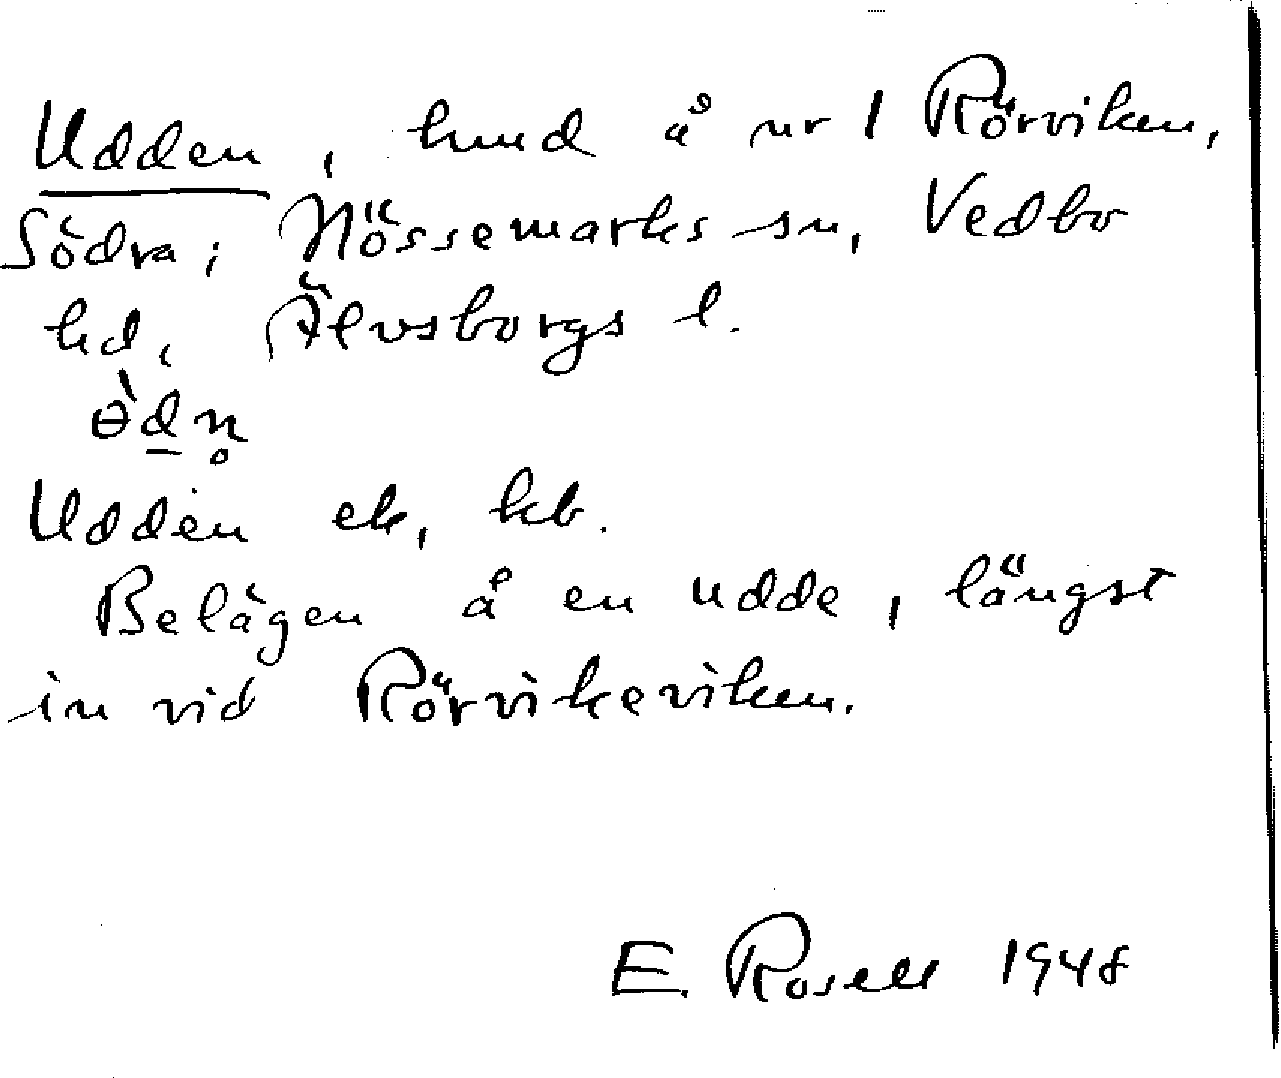 Udden, hmd å nr 1 Rörviken,
Södra; Nössemarks sn, Vedbo
hd, Älvsborgs l.
ɵ̀dn̥
Udden ek, kb.
Belägen å en udde, längst
in vid Rörvikeviken.
E. Rosell 1948